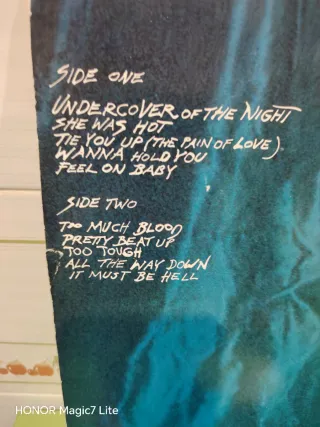 SIDE ONE
UNDERCOVER OF THE NIGHT
SHE WAS HOT
TIE YOU UP (THE PAIN OF LOVE)
WANNA HOLD YOU
FEEL ON BABY
SIDE TWO
TOO MUCH BLOOD
PRETTY BEAT UP
TOO TOUGH
ALL THE WAY DOWN
IT MUST BE HELL
HONOR Magic7 Lite